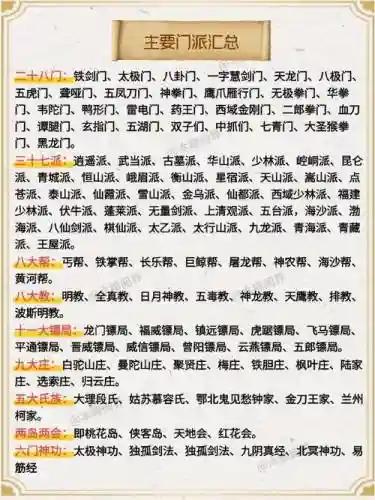 主要门派汇总
二十八门：铁剑门、太极门、八卦门、一字慧剑门、天龙门、八极门、
五虎门、聋哑门、五凤刀门、神拳门、鹰爪雁行门、无极拳门、华拳
门、韦陀门、鸭形门、雷电门、药王门、西域金刚门、二郎拳门、血刀
门、谭腿门、玄指门、五湖门、双子们、中抓们、七青门、大圣猴拳
门、黑龙门。
三十七派：逍遥派、武当派、古墓派、华山派、少林派、崆峒派、昆仑
派、青城派、恒山派、峨眉派、衡山派、星宿派、天山派、嵩山派、点
苍派、泰山派、仙霞派、雪山派、金乌派、仙都派、西域少林派、福建
少林派、伏牛派、蓬莱派、无量剑派、上清观派、五台派、海沙派、渤
海派、八仙剑派、棋仙派、太乙派、太行山派、九龙派、青海派、青藏
派、王屋派。
八大帮：丐帮、铁掌帮、长乐帮、巨鲸帮、屠龙帮、神农帮、海沙帮、
黄河帮。
八大教：明教、全真教、日月神教、五毒教、神龙教、天鹰教、排教、
波斯明教。
十一大镖局：龙门镖局、福威镖局、镇远镖局、虎踞镖局、飞马镖局、
平通镖局、晋威镖局、威信镖局、曾阳镖局、云燕镖局、五郎镖局。
九大庄：白驼山庄、曼陀山庄、聚贤庄、梅庄、铁胆庄、枫叶庄、陆家
庄、选索庄、归云庄。
五大氏族：大理段氏、姑苏慕容氏、鄂北鬼见愁钟家、金刀王家、兰州
柯家。
两岛两会：即桃花岛、侠客岛、天地会、红花会。
六门神功：太极神功、独孤剑法、独孤剑法、九阴真经、北冥神功、易
筋经